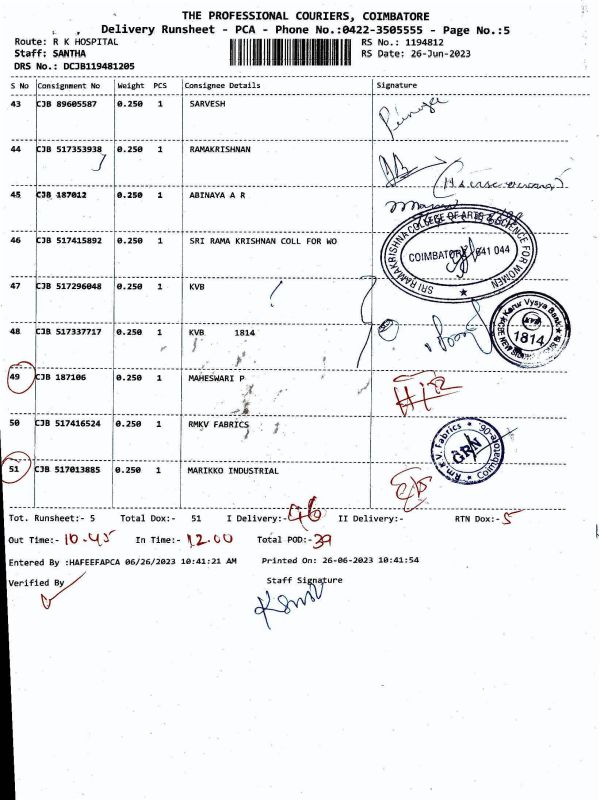 THE PROFESSIONAL COURIERS, COIMBATORE
Delivery Runsheet - PCA - Phone No.:0422-3505555 - Page No.:5
Route: R K HOSPITAL RS No.: 1194812
Staff: SANTHA RS Date: 26-Jun-2023
DRS No.: DCJB119481205
S No Consignment No Weight PCS Consignee Details Signature
43 CJB 89605587 0.250 1 SARVESH
44 CJB 517353938 0.250 1 RAMAKRISHNAN
45 CJB 187012 0.250 1 ABINAYA A R
46 CJB 517415892 0.250 1 SRI RAMA KRISHNAN COLL FOR WO
SRI RAMAKRISHNA COLLEGE OF ARTS & SCIENCE FOR WOMEN
COIMBATORE 641 044
47 CJB 517296048 0.250 1 KVB
48 CJB 517337717 0.250 1 KVB 1814
Karur Vysya Bank
KVB
1814
49 CJB 187106 0.250 1 MAHESWARI P
50 CJB 517416524 0.250 1 RMKV FABRICS
Rm.K.V. Fabrics
GRN
Coimbatore-90.
51 CJB 517013885 0.250 1 MARIKKO INDUSTRIAL
Tot. Runsheet:- 5 Total Dox:- 51 I Delivery:- 46 II Delivery:- RTN Dox:- 5
Out Time:- 10.45 In Time:- 12.00 Total POD:- 39
Entered By :HAFEEFAPCA 06/26/2023 10:41:21 AM Printed On: 26-06-2023 10:41:54
Verified By Staff Signature